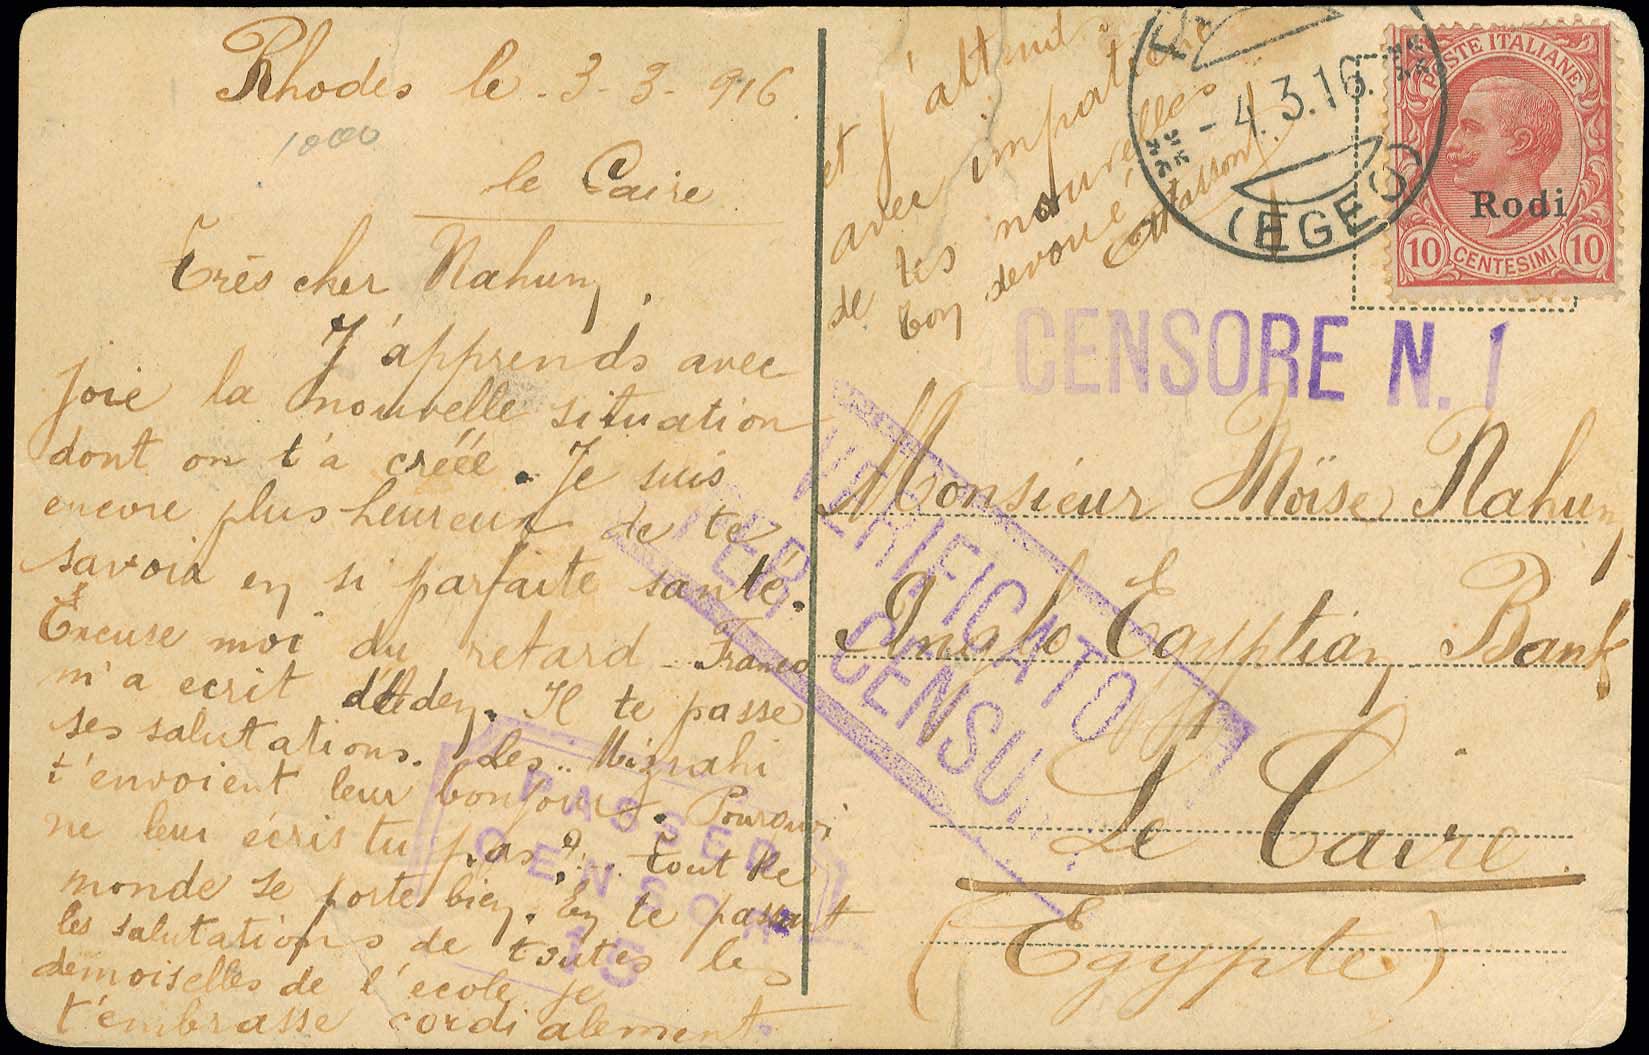 Rhodes le - 3 - 3 - 916
1000
le Caire
Très cher Nahum,
J'apprends avec
joie la nouvelle situation
dont on t'a créée. Je suis
encore plus heureux de te
savoir en si parfaite santé.
Excuse moi du retard - Franco
m'a ecrit d'Aden. Il te passe
ses salutations. Les.. Mizrahi
t'envoient leur bonjour. Pourquoi
ne leur écris tu pas?... Tout le
monde se porte bien. En te passant
les salutations de toutes les
demoiselles de l'école je
t'embrasse cordialement
et j'attends
avec impatience
de tes nouvelles
Ton devoué
- 4.3.16.
(EGEO)
POSTE ITALIANE
Rodi
10 CENTESIMI 10
CENSORE N. 1
VERIFICATO
PER CENSU
PASSED
CENSOR
15
Monsieur Moïse Nahum
Anglo Egyptian Bank
Le Caire
(Egypte)